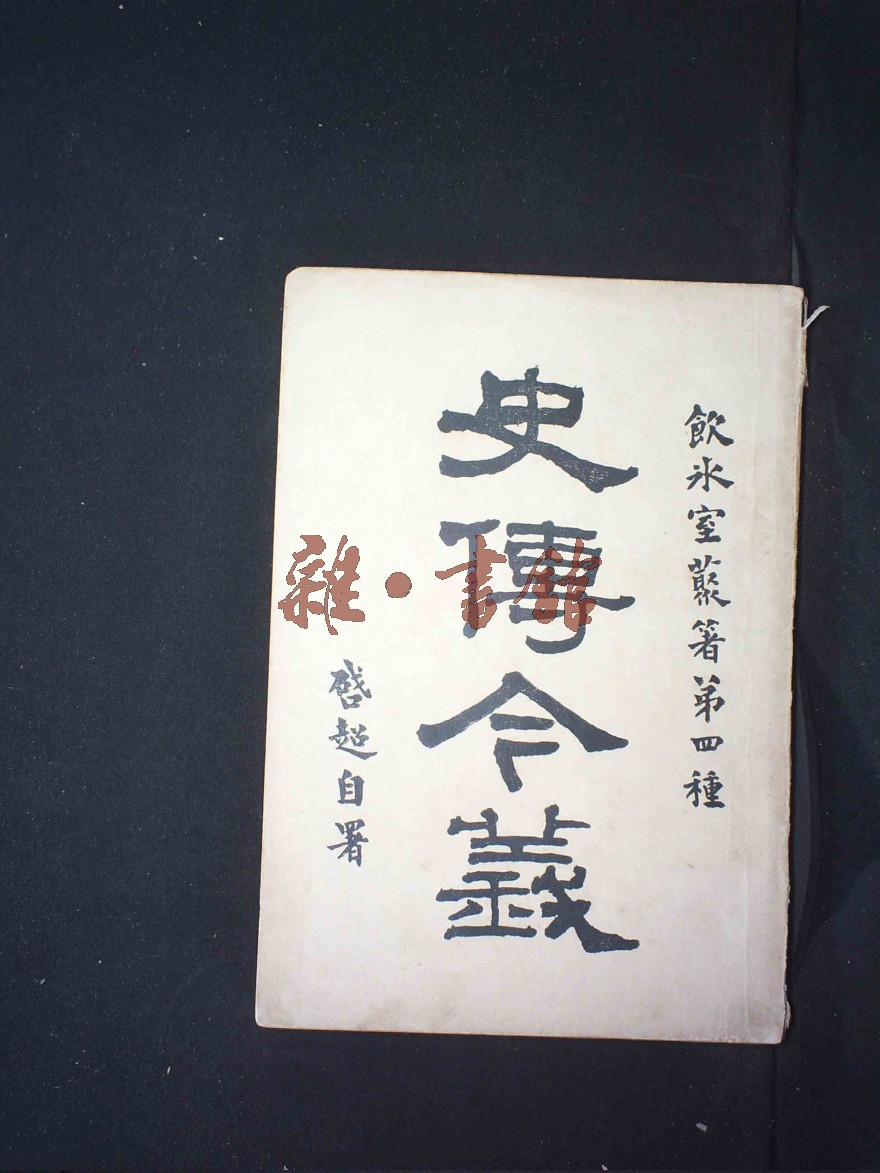 飲冰室叢箸弟四種
史傳今義
啓超自署
雜·書館